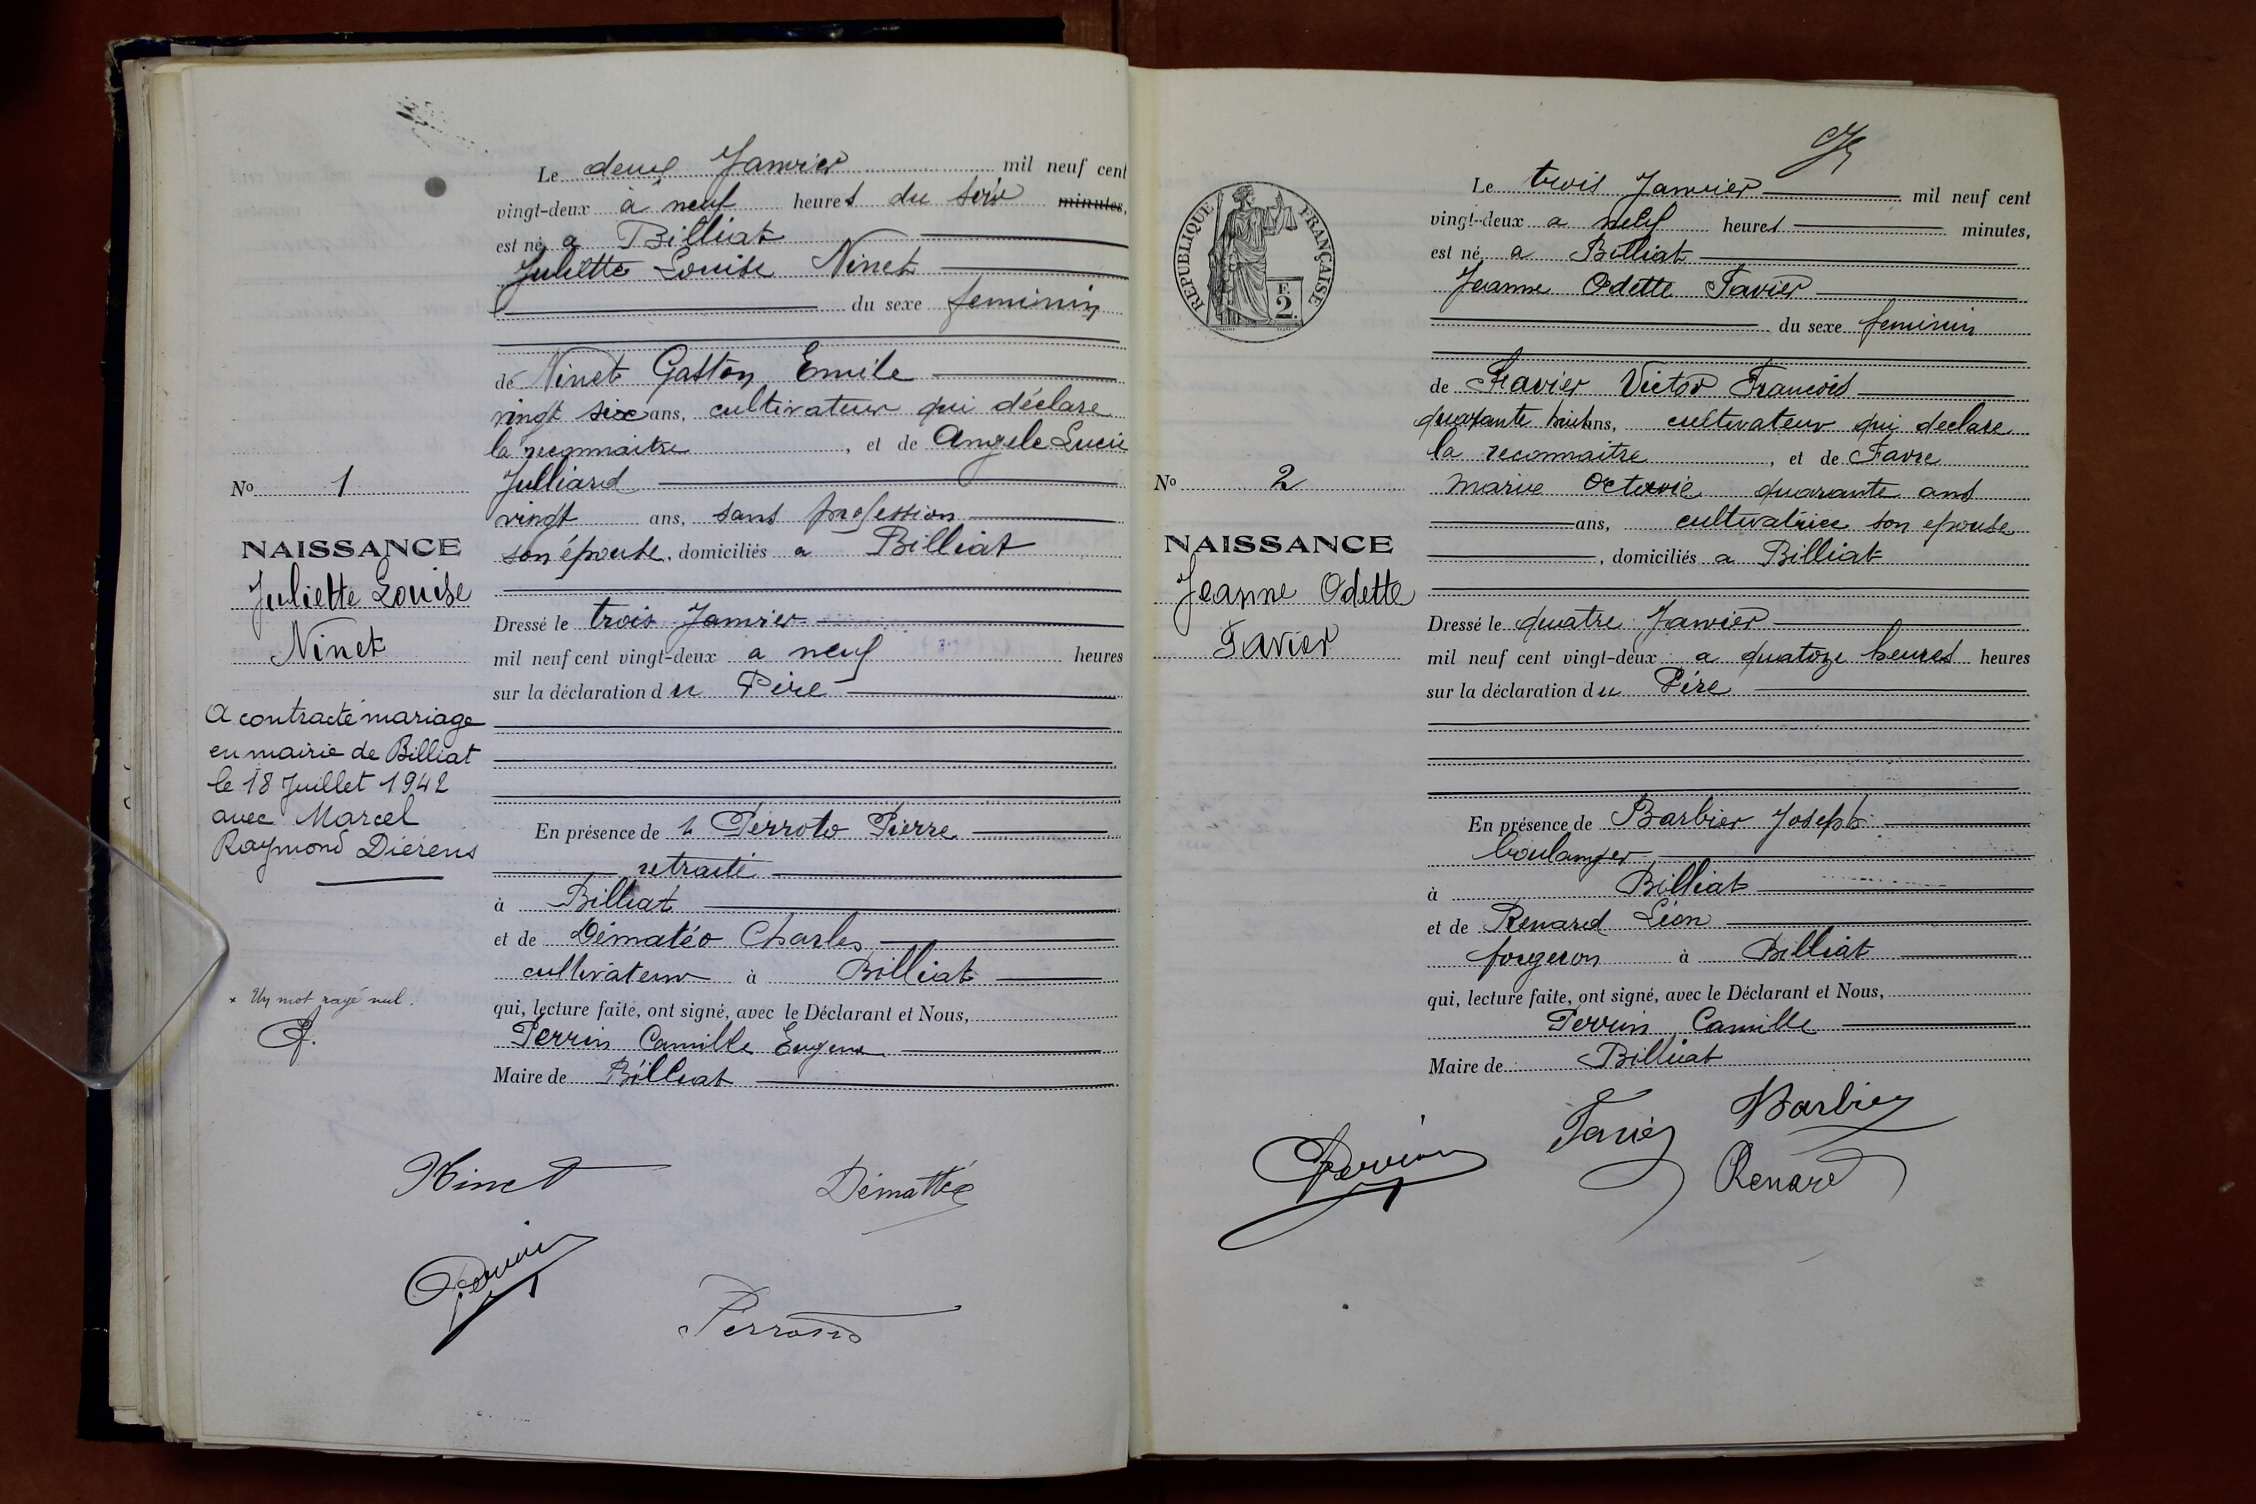 Le deux Janvier mil neuf cent
vingt-deux à neuf heures du soir minutes,
est né a Billiat
Juliette Louise Ninet
du sexe feminin
de Ninet Gaston Emile
vingt six ans, cultivateur qui déclare
la reconnaitre, et de Angele Lucie
Julliard
vingt ans, sans profession
son épouse, domiciliés a Billiat
No 1
NAISSANCE
Juliette Louise
Ninet
A contracté mariage
en mairie de Billiat
le 18 Juillet 1942
avec Marcel
Raymond Dierens
Dressé le trois Janvier
mil neuf cent vingt-deux a neuf heures
sur la déclaration du Père
En présence de Perroto Pierre
retraité
à Billiat
et de Dématéo Charles
cultivateur à Billiat
qui, lecture faite, ont signé, avec le Déclarant et Nous,
Perrin Camille Eugene
Maire de Billiat
x Un mot rayé nul.
P.
Ninet
Démattéo
Perrin
RÉPUBLIQUE FRANÇAISE
F.
2.
Le trois Janvier mil neuf cent
vingt-deux a neuf heures minutes,
est né a Billiat
Jeanne Odette Favier
du sexe feminin
de Favier Victor Francois
quarante huit ans, cultivateur qui declare
la reconnaitre, et de Favre
Marie Octavie quarante ans
ans, cultivatrice son epouse
, domiciliés a Billiat
No 2
NAISSANCE
Jeanne Odette
Favier
Dressé le quatre Janvier
mil neuf cent vingt-deux a quatoze heures heures
sur la déclaration du Père
En présence de Barbier Joseph
boulanger
à Billiat
et de Renard Léon
forgeron à Billiat
qui, lecture faite, ont signé, avec le Déclarant et Nous,
Perrin Camille
Maire de Billiat
Favier Barbier
Perrin
Renard